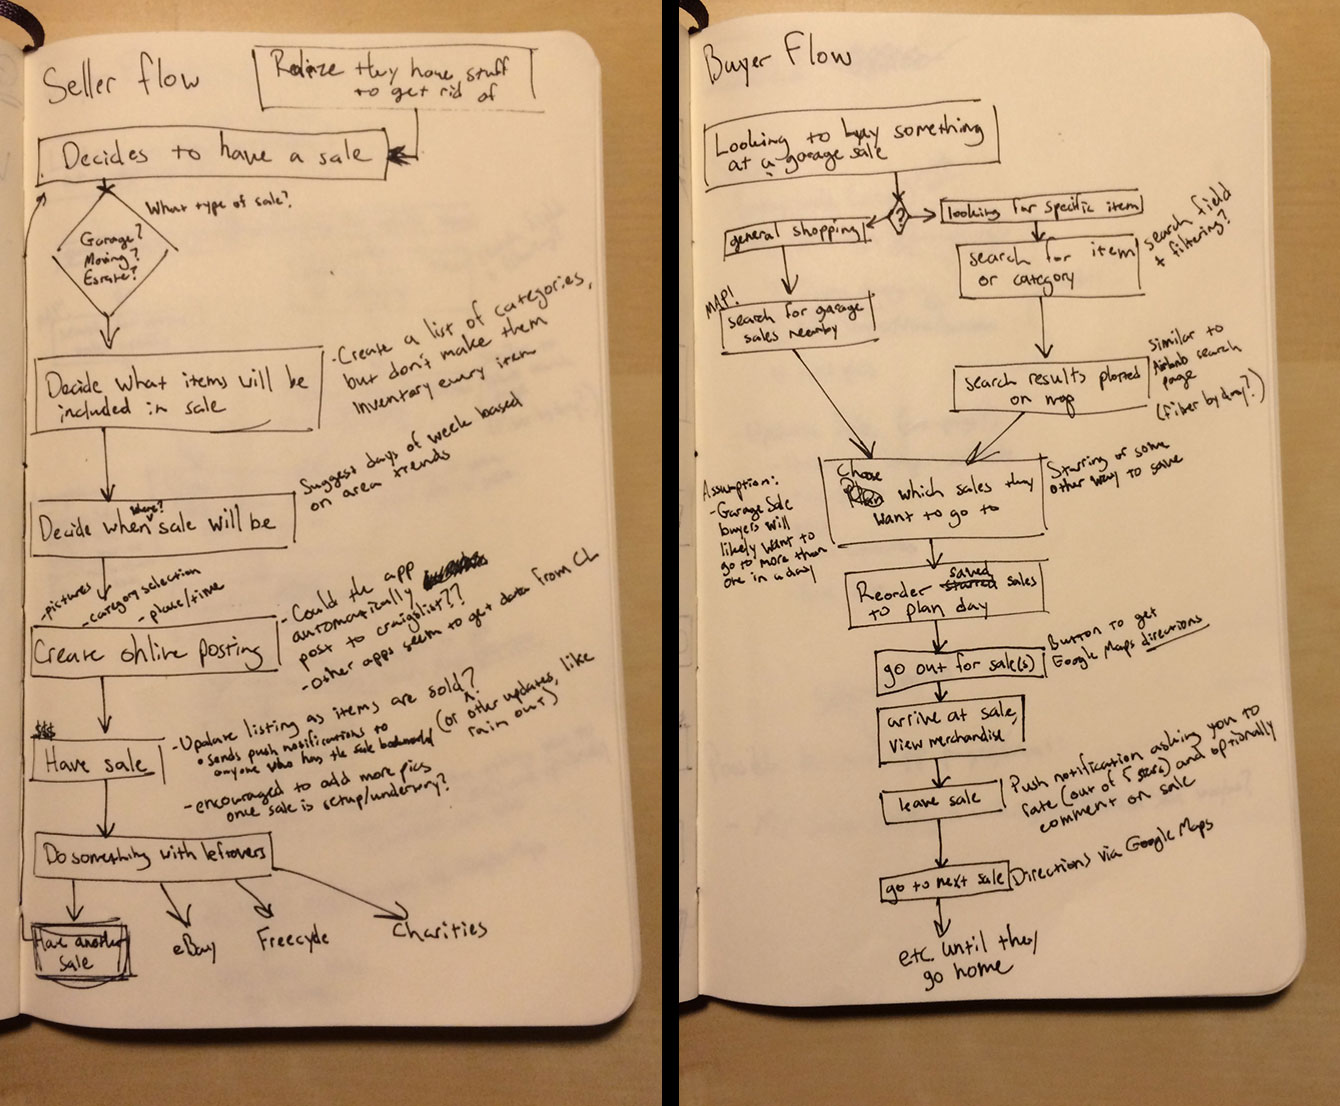 Seller flow
Realize they have stuff
to get rid of
Decides to have a sale
What type of sale?
Garage?
Moving?
Estate?
Decide what items will be
included in sale
-Create a list of categories,
but don't make them
inventory every item
Suggest days of week based
on area trends
where?
Decide when sale will be
-pictures
-category selection
-place/time
Create online posting
-Could the app
automatically
post to craigslist??
-Other apps seem to get data from CL
$$$
Have sale
-Update listing as items are sold?
(or other updates, like
rain out)
• sends push notifications to
anyone who has the sale bookmarked
-encouraged to add more pics
once sale is setup/underway?
Do something with leftovers
Have another
sale
eBay
Freecycle
Charities
Buyer Flow
Looking to buy something
at a garage sale
?
general shopping
looking for specific item
search for item
or category
search field
+ filtering?
MAP!
search for garage
sales nearby
search results plotted
on map
similar to
Airbnb search
page
(filter by day?)
Assumption:
-Garage Sale
buyers will
likely want to
go to more than
one in a day
Choose
Plan which sales they
want to go to
Starring or some
other way to save
saved
Reorder starred sales
to plan day
go out for sale(s)
Button to get
Google Maps directions
arrive at sale,
view merchandise
leave sale
Push notification asking you to
rate (out of 5 stars) and optionally
comment on sale
go to next sale
Directions via Google Maps
etc. until they
go home